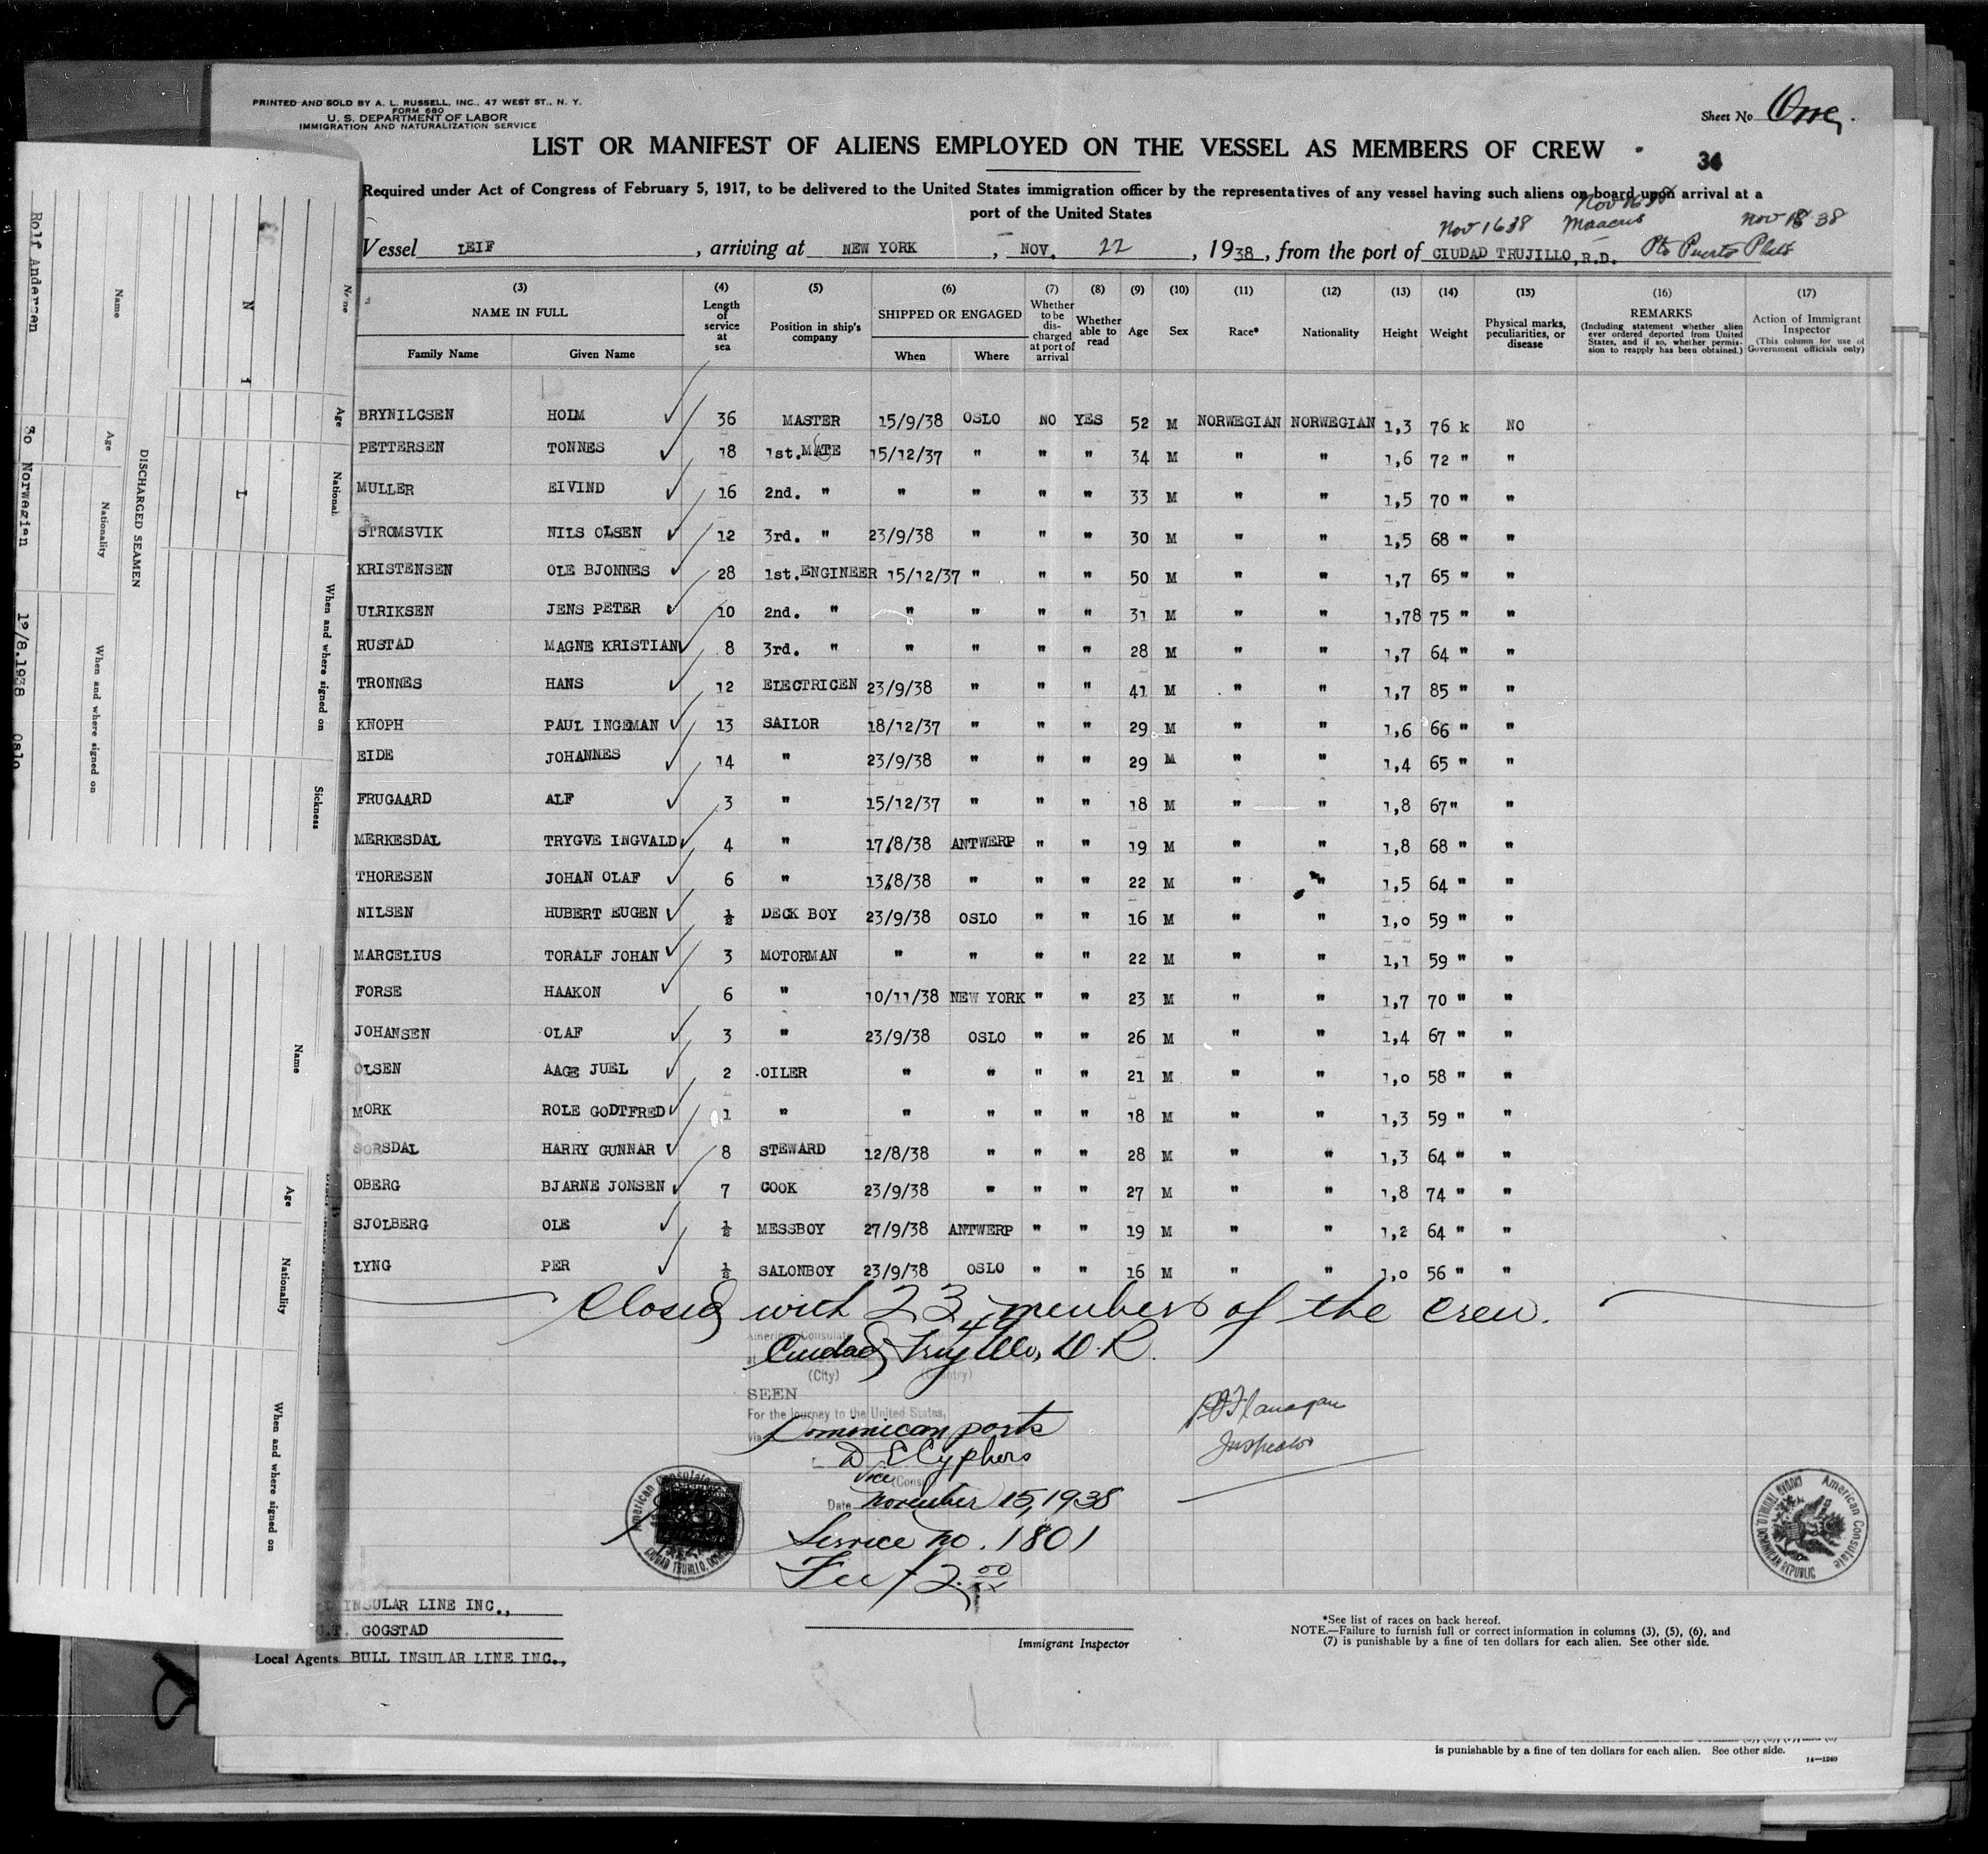 PRINTED AND SOLD BY A. L. RUSSELL, INC., 47 WEST ST., N. Y.
FORM 680
U. S. DEPARTMENT OF LABOR
IMMIGRATION AND NATURALIZATION SERVICE
Sheet No One
LIST OR MANIFEST OF ALIENS EMPLOYED ON THE VESSEL AS MEMBERS OF CREW
34
Required under Act of Congress of February 5, 1917, to be delivered to the United States immigration officer by the representatives of any vessel having such aliens on board upon arrival at a
port of the United States
Nov 16 38 Nov 18 38
Vessel LEIF, arriving at NEW YORK, NOV. 22, 1938, from the port of CIUDAD TRUJILLO, R.D. Pto Puerto Plata
(3) (4) (5) (6) (7) (8) (9) (10) (11) (12) (13) (14) (15) (16) (17)
NAME IN FULL Length of service at sea Position in ship's company SHIPPED OR ENGAGED Whether to be discharged at port of arrival Whether able to read Age Sex Race* Nationality Height Weight Physical marks, peculiarities, or disease REMARKS (Including statement whether alien ever ordered deported from United States, and if so, whether permission to reapply has been obtained.) Action of Immigrant Inspector (This column for use of Government officials only)
Family Name Given Name When Where
BRYNILCSEN HOIM 36 MASTER 15/9/38 OSLO NO YES 52 M NORWEGIAN NORWEGIAN 1,3 76 k NO
PETTERSEN TONNES 18 1st. MATE 15/12/37 " " " 34 M " " 1,6 72 " "
MULLER EIVIND 16 2nd. " " " " " 33 M " " 1,5 70 " "
STROMSVIK NILS OLSEN 12 3rd. " 23/9/38 " " " 30 M " " 1,5 68 " "
KRISTENSEN OLE BJONNES 28 1st. ENGINEER 15/12/37 " " " 50 M " " 1,7 65 " "
ULRIKSEN JENS PETER 10 2nd. " " " " " 31 M " " 1,78 75 " "
RUSTAD MAGNE KRISTIAN 8 3rd. " " " " " 28 M " " 1,7 64 " "
TRONNES HANS 12 ELECTRICEN 23/9/38 " " " 41 M " " 1,7 85 " "
KNOPH PAUL INGEMAN 13 SAILOR 18/12/37 " " " 29 M " " 1,6 66 " "
EIDE JOHANNES 14 " 23/9/38 " " " 29 M " " 1,4 65 " "
FRUGAARD ALF 3 " 15/12/37 " " " 18 M " " 1,8 67 " "
MERKESDAL TRYGVE INGVALD 4 " 17/8/38 ANTWERP " " 19 M " " 1,8 68 " "
THORESEN JOHAN OLAF 6 " 13/8/38 " " " 22 M " " 1,5 64 " "
NILSEN HUBERT EUGEN ½ DECK BOY 23/9/38 OSLO " " 16 M " " 1,0 59 " "
MARCELIUS TORALF JOHAN 3 MOTORMAN " " " " 22 M " " 1,1 59 " "
FORSE HAAKON 6 " 10/11/38 NEW YORK " " 23 M " " 1,7 70 " "
JOHANSEN OLAF 3 " 23/9/38 OSLO " " 26 M " " 1,4 67 " "
OLSEN AAGE JUEL 2 OILER " " " " 21 M " " 1,0 58 " "
MORK ROLE GODTFRED 1 " " " " " 18 M " " 1,3 59 " "
SORSDAL HARRY GUNNAR 8 STEWARD 12/8/38 " " " 28 M " " 1,3 64 " "
OBERG BJARNE JONSEN 7 COOK 23/9/38 " " " 27 M " " 1,8 74 " "
SJOLBERG OLE ½ MESSBOY 27/9/38 ANTWERP " " 19 M " " 1,2 64 " "
LYNG PER ½ SALONBOY 23/9/38 OSLO " " 16 M " " 1,0 56 " "
Closed with 23 members of the crew.
American Consulate
Ciudad Trujillo, D.R.
(City) (Country)
SEEN
For the journey to the United States,
via Dominican ports
Vice (Consul)
Date November 15, 1938
Service no. 1801
Fee $2.00
Flanagan
Inspector
American Consulate
CIUDAD TRUJILLO, DOMINICAN REPUBLIC
American Consulate
CIUDAD TRUJILLO DOMINICAN REPUBLIC
INSULAR LINE INC.,
GOGSTAD
Local Agents BULL INSULAR LINE INC.,
Immigrant Inspector
*See list of races on back hereof.
NOTE.—Failure to furnish full or correct information in columns (3), (5), (6), and
(7) is punishable by a fine of ten dollars for each alien. See other side.
is punishable by a fine of ten dollars for each alien. See other side.
14—1240
DISCHARGED SEAMEN
Name Age Nationality When and where signed on
Rolf Andersen 30 Norwegian 19/8.1938 Oslo
Name Age National When and where signed on Sickness
N i l
Name Age Nationality When and where signed on